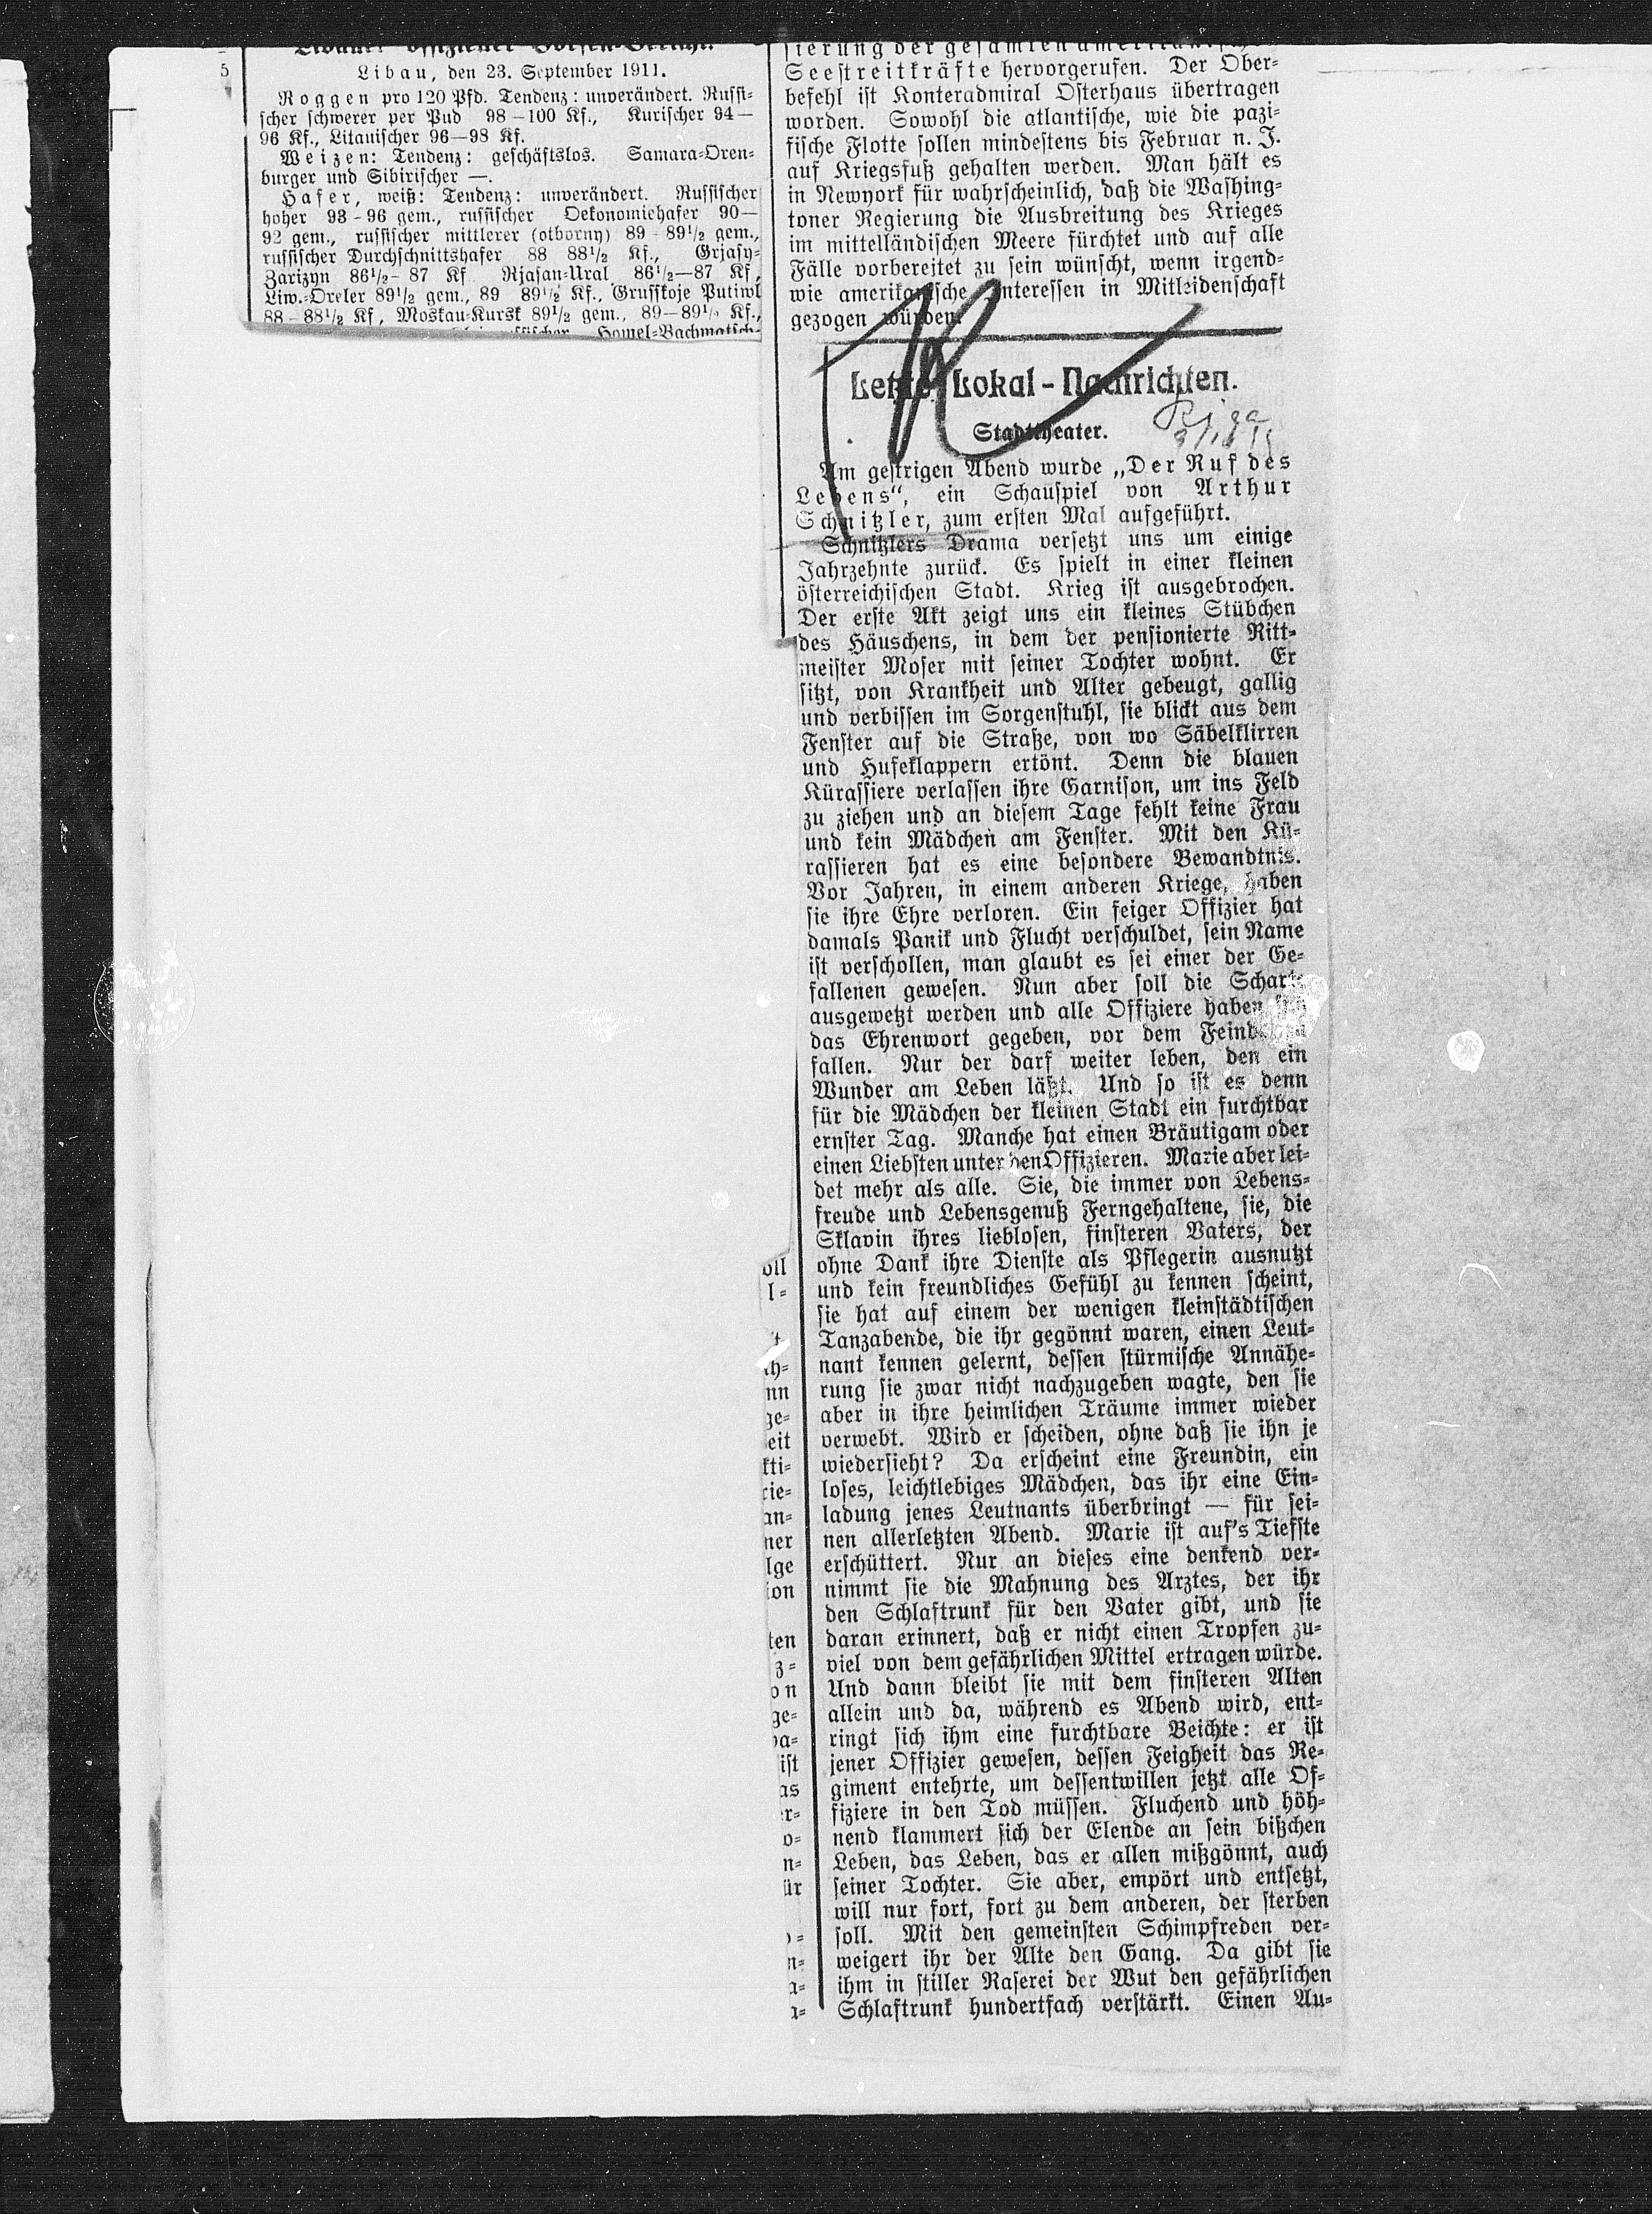 Libau, den 23. September 1911.
Roggen pro 120 Pfd. Tendenz: unverändert. Russi-
scher schwerer per Pud 98–100 Kf., Kurischer 94—
96 Kf., Litauischer 96—98 Kf.
Weizen: Tendenz: geschäftslos. Samara-Oren-
burger und Sibirischer —.
Hafer, weiß: Tendenz: unverändert. Russischer
hoher 93-96 gem., russischer Oekonomiehafer 90—
92 gem., russischer mittlerer (otborny) 89-89½ gem.,
russischer Durchschnittshafer 88 88½ Kf., Grjasy-
Zarizyn 86½-87 Kf Rjasan-Ural 86½—87 Kf,
Liw.-Oreler 89½ gem., 89 89½ Kf., Grusskoje Putiwl
88-88½ Kf, Moskau-Kursk 89½ gem., 89—89½ Kf.,
Homel-Bachmatsch-
sierung der gesamten
Seestreitkräfte hervorgerufen. Der Ober-
befehl ist Konteradmiral Osterhaus übertragen
worden. Sowohl die atlantische, wie die pazi-
fische Flotte sollen mindestens bis Februar n. J.
auf Kriegsfuß gehalten werden. Man hält es
in Newyork für wahrscheinlich, daß die Washing-
toner Regierung die Ausbreitung des Krieges
im mittelländischen Meere fürchtet und auf alle
Fälle vorbereitet zu sein wünscht, wenn irgend-
wie amerikanische Interessen in Mitleidenschaft
gezogen würden.
Letzte Lokal-Nachrichten.
Riga
Stadttheater.
Am gestrigen Abend wurde „Der Ruf des
Lebens“, ein Schauspiel von Arthur
Schnitzler, zum ersten Mal aufgeführt.
Schnitzlers Drama versetzt uns um einige
Jahrzehnte zurück. Es spielt in einer kleinen
österreichischen Stadt. Krieg ist ausgebrochen.
Der erste Akt zeigt uns ein kleines Stübchen
des Häuschens, in dem der pensionierte Ritt-
meister Moser mit seiner Tochter wohnt. Er
sitzt, von Krankheit und Alter gebeugt, gallig
und verbissen im Sorgenstuhl, sie blickt aus dem
Fenster auf die Straße, von wo Säbelklirren
und Hufeklappern ertönt. Denn die blauen
Kürassiere verlassen ihre Garnison, um ins Feld
zu ziehen und an diesem Tage fehlt keine Frau
und kein Mädchen am Fenster. Mit den Kü-
rassieren hat es eine besondere Bewandtnis.
Vor Jahren, in einem anderen Kriege, haben
sie ihre Ehre verloren. Ein feiger Offizier hat
damals Panik und Flucht verschuldet, sein Name
ist verschollen, man glaubt es sei einer der Ge-
fallenen gewesen. Nun aber soll die Scharte
ausgewetzt werden und alle Offiziere haben
das Ehrenwort gegeben, vor dem Feind
fallen. Nur der darf weiter leben, den ein
Wunder am Leben läßt. Und so ist es denn
für die Mädchen der kleinen Stadt ein furchtbar
ernster Tag. Manche hat einen Bräutigam oder
einen Liebsten unter den Offizieren. Marie aber lei-
det mehr als alle. Sie, die immer von Lebens-
freude und Lebensgenuß Ferngehaltene, sie, die
Sklavin ihres lieblosen, finsteren Vaters, der
ohne Dank ihre Dienste als Pflegerin ausnutzt
und kein freundliches Gefühl zu kennen scheint,
sie hat auf einem der wenigen kleinstädtischen
Tanzabende, die ihr gegönnt waren, einen Leut-
nant kennen gelernt, dessen stürmische Annähe-
rung sie zwar nicht nachzugeben wagte, den sie
aber in ihre heimlichen Träume immer wieder
verwebt. Wird er scheiden, ohne daß sie ihn je
wiedersieht? Da erscheint eine Freundin, ein
loses, leichtlebiges Mädchen, das ihr eine Ein-
ladung jenes Leutnants überbringt — für sei-
nen allerletzten Abend. Marie ist auf's Tiefste
erschüttert. Nur an dieses eine denkend ver-
nimmt sie die Mahnung des Arztes, der ihr
den Schlaftrunk für den Vater gibt, und sie
daran erinnert, daß er nicht einen Tropfen zu-
viel von dem gefährlichen Mittel ertragen würde.
Und dann bleibt sie mit dem finsteren Alten
allein und da, während es Abend wird, ent-
ringt sich ihm eine furchtbare Beichte: er ist
jener Offizier gewesen, dessen Feigheit das Re-
giment entehrte, um dessentwillen jetzt alle Of-
fiziere in den Tod müssen. Fluchend und höh-
nend klammert sich der Elende an sein bißchen
Leben, das Leben, das er allen mißgönnt, auch
seiner Tochter. Sie aber, empört und entsetzt,
will nur fort, fort zu dem anderen, der sterben
soll. Mit den gemeinsten Schimpfreden ver-
weigert ihr der Alte den Gang. Da gibt sie
ihm in stiller Raserei der Wut den gefährlichen
Schlaftrunk hundertfach verstärkt. Einen Au-